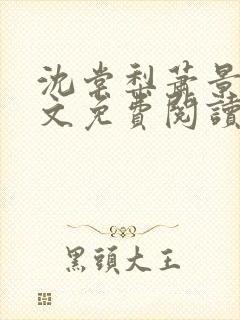 沈棠梨萧景
文免費閱讀
黑頭大王